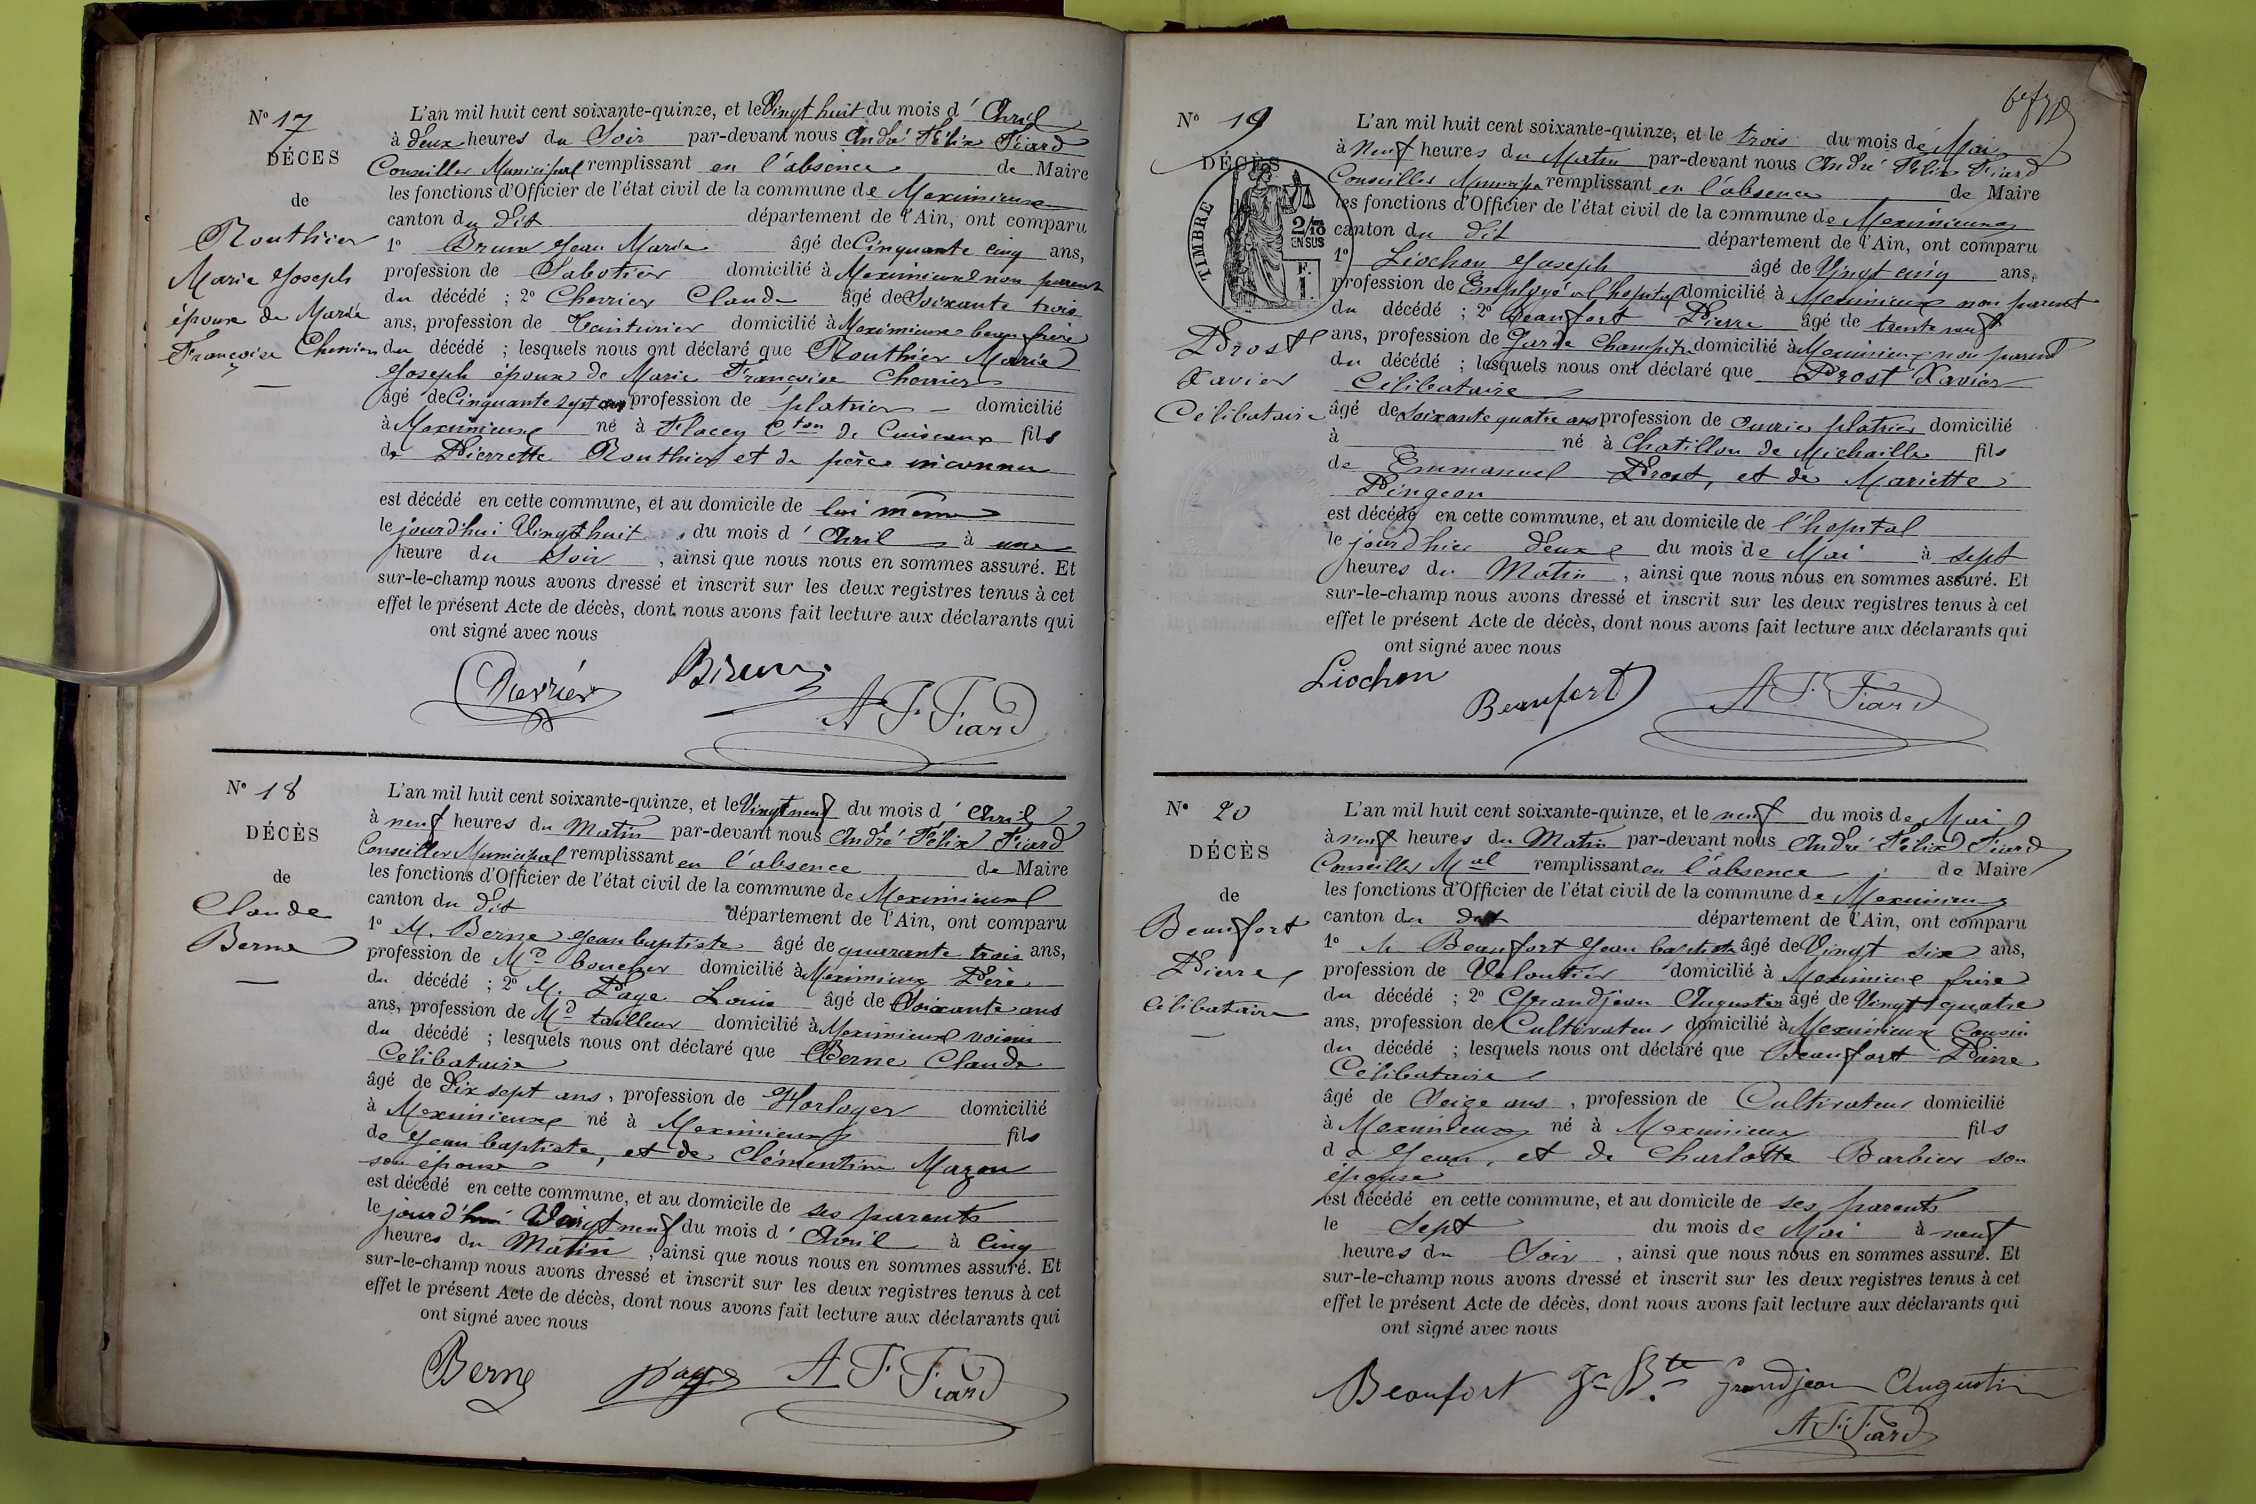 N° 17
DÉCES
de
Routhier
Marie Joseph
époux de Marie
Françoise Cherrier
L'an mil huit cent soixante-quinze, et le Vingt huit du mois d' Avril
à deux heures du Soir par-devant nous André Félix Fiard
Conseiller Municipal remplissant en l'absence de Maire
les fonctions d'Officier de l'état civil de la commune de Meximieux
canton du dit département de l'Ain, ont comparu
1° Brun Jean Marie âgé de Cinquante cinq ans,
profession de Sabotier domicilié à Meximieux non parent
du décédé ; 2° Cherrier Claude âgé de Soixante trois
ans, profession de Teinturier domicilié à Meximieux beau frère
du décédé ; lesquels nous ont déclaré que Routhier Marie
Joseph époux de Marie Françoise Cherrier
âgé de Cinquante sept ans profession de platrier domicilié
à Meximieux né à Flacey Cton de Cuiseaux fils
de Pierrette Routhier et de père inconnu
est décédé en cette commune, et au domicile de lui même
le jourd'hui Vingt huit du mois d' Avril à une
heure du Soir , ainsi que nous nous en sommes assuré. Et
sur-le-champ nous avons dressé et inscrit sur les deux registres tenus à cet
effet le présent Acte de décès, dont nous avons fait lecture aux déclarants qui
ont signé avec nous
Cherrier Brun
A F Fiard
N° 18
DÉCÈS
de
Claude
Berne
L'an mil huit cent soixante-quinze, et le Vingt neuf du mois d' Avril
à neuf heures du Matin par-devant nous André Félix Fiard
Conseiller Municipal remplissant en l'absence de Maire
les fonctions d'Officier de l'état civil de la commune de Meximieux
canton du dit département de l'Ain, ont comparu
1° M. Berne Jean baptiste âgé de quarante trois ans,
profession de Md boucher domicilié à Meximieux Père
du décédé ; 2° M. Page Louis âgé de Soixante ans
ans, profession de Md tailleur domicilié à Meximieux voisin
du décédé ; lesquels nous ont déclaré que Berne Claude
Célibataire
âgé de dix sept ans, profession de Horloger domicilié
à Meximieux né à Meximieux fils
de Jean baptiste, et de Clémentine Mazou
son épouse
est décédé en cette commune, et au domicile de ses parents
le jourd'hui Vingt neuf du mois d' Avril à Cinq
heures du Matin , ainsi que nous nous en sommes assuré. Et
sur-le-champ nous avons dressé et inscrit sur les deux registres tenus à cet
effet le présent Acte de décès, dont nous avons fait lecture aux déclarants qui
ont signé avec nous
Berne page A F Fiard
N° 19
DÉCÈS
TIMBRE
2/10
EN SUS
F.
1.
Prost
Xavier
Célibataire
L'an mil huit cent soixante-quinze, et le trois du mois de Mai
à Neuf heures du Matin par-devant nous André Félix Fiard
Conseiller Municipal remplissant en l'absence de Maire
les fonctions d'Officier de l'état civil de la commune de Meximieux
canton du dit département de l'Ain, ont comparu
1° Liochon Joseph âgé de Vingt cinq ans,
profession de Employé à l'hopital domicilié à Meximieux non parent
du décédé ; 2° Beaufort Pierre âgé de trente neuf
ans, profession de Garde Champêtre domicilié à Meximieux non parent
du décédé ; lesquels nous ont déclaré que Prost Xavier
Célibataire
âgé de Soixante quatre ans profession de ouvrier platrier domicilié
à né à Chatillon de Michaille fils
de Emmanuel Prost, et de Mariette
Pingeon
est décédé en cette commune, et au domicile de l'hopital
le jourd'hier deux du mois de Mai à sept
heures du Matin , ainsi que nous nous en sommes assuré. Et
sur-le-champ nous avons dressé et inscrit sur les deux registres tenus à cet
effet le présent Acte de décès, dont nous avons fait lecture aux déclarants qui
ont signé avec nous
Liochon Beaufort A F Fiard
N° 20
DÉCÈS
de
Beaufort
Pierre
célibataire
L'an mil huit cent soixante-quinze, et le neuf du mois de Mai
à neuf heures du Matin par-devant nous André Félix Fiard
Conseiller Mal remplissant en l'absence de Maire
les fonctions d'Officier de l'état civil de la commune de Meximieux
canton du dit département de l'Ain, ont comparu
1° M Beaufort Jean baptiste âgé de Vingt six ans,
profession de Veloutier domicilié à Meximieux frère
du décédé ; 2° Grandjean Augustin âgé de Vingt quatre
ans, profession de Cultivateur domicilié à Meximieux Cousin
du décédé ; lesquels nous ont déclaré que Beaufort Pierre
Célibataire
âgé de Seize ans , profession de Cultivateur domicilié
à Meximieux né à Meximieux fils
de Jean, et de Charlotte Barbier son
épouse
est décédé en cette commune, et au domicile de ses parents
le Sept du mois de Mai à neuf
heures du Soir , ainsi que nous nous en sommes assuré. Et
sur-le-champ nous avons dressé et inscrit sur les deux registres tenus à cet
effet le présent Acte de décès, dont nous avons fait lecture aux déclarants qui
ont signé avec nous
Beaufort Jn Bte Grandjean Augustin
A F Fiard